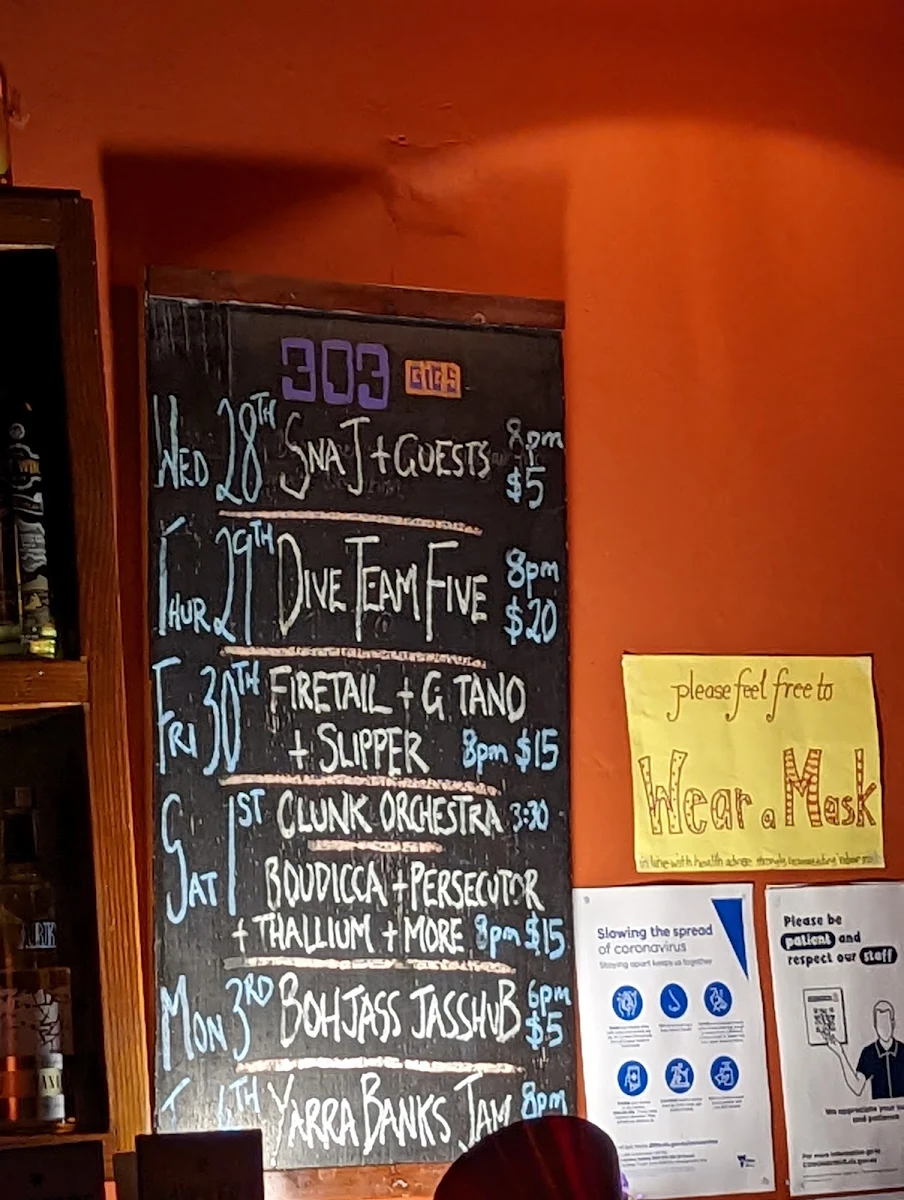 303 GIGS
WED 28TH SNA J + GUESTS 8pm
$5
THUR 29TH DIVE TEAM FIVE 8pm
$20
FRI 30TH FIRETAIL + G TANO
+ SLIPPER 8pm $15
SAT 1ST CLUNK ORCHESTRA 3:30
BOUDICCA + PERSECUTOR
+ THALLIUM + MORE 8pm $15
MON 3RD BOHJASS JASSHUB 6pm
$5
4TH YARRA BANKS JAM 8pm
please feel free to
Wear a Mask
in line with health advice strongly recommending indoor
Slowing the spread
of coronavirus
Staying apart keeps us together
Please be
patient and
respect our staff
We appreciate your
and patience
For more information go to